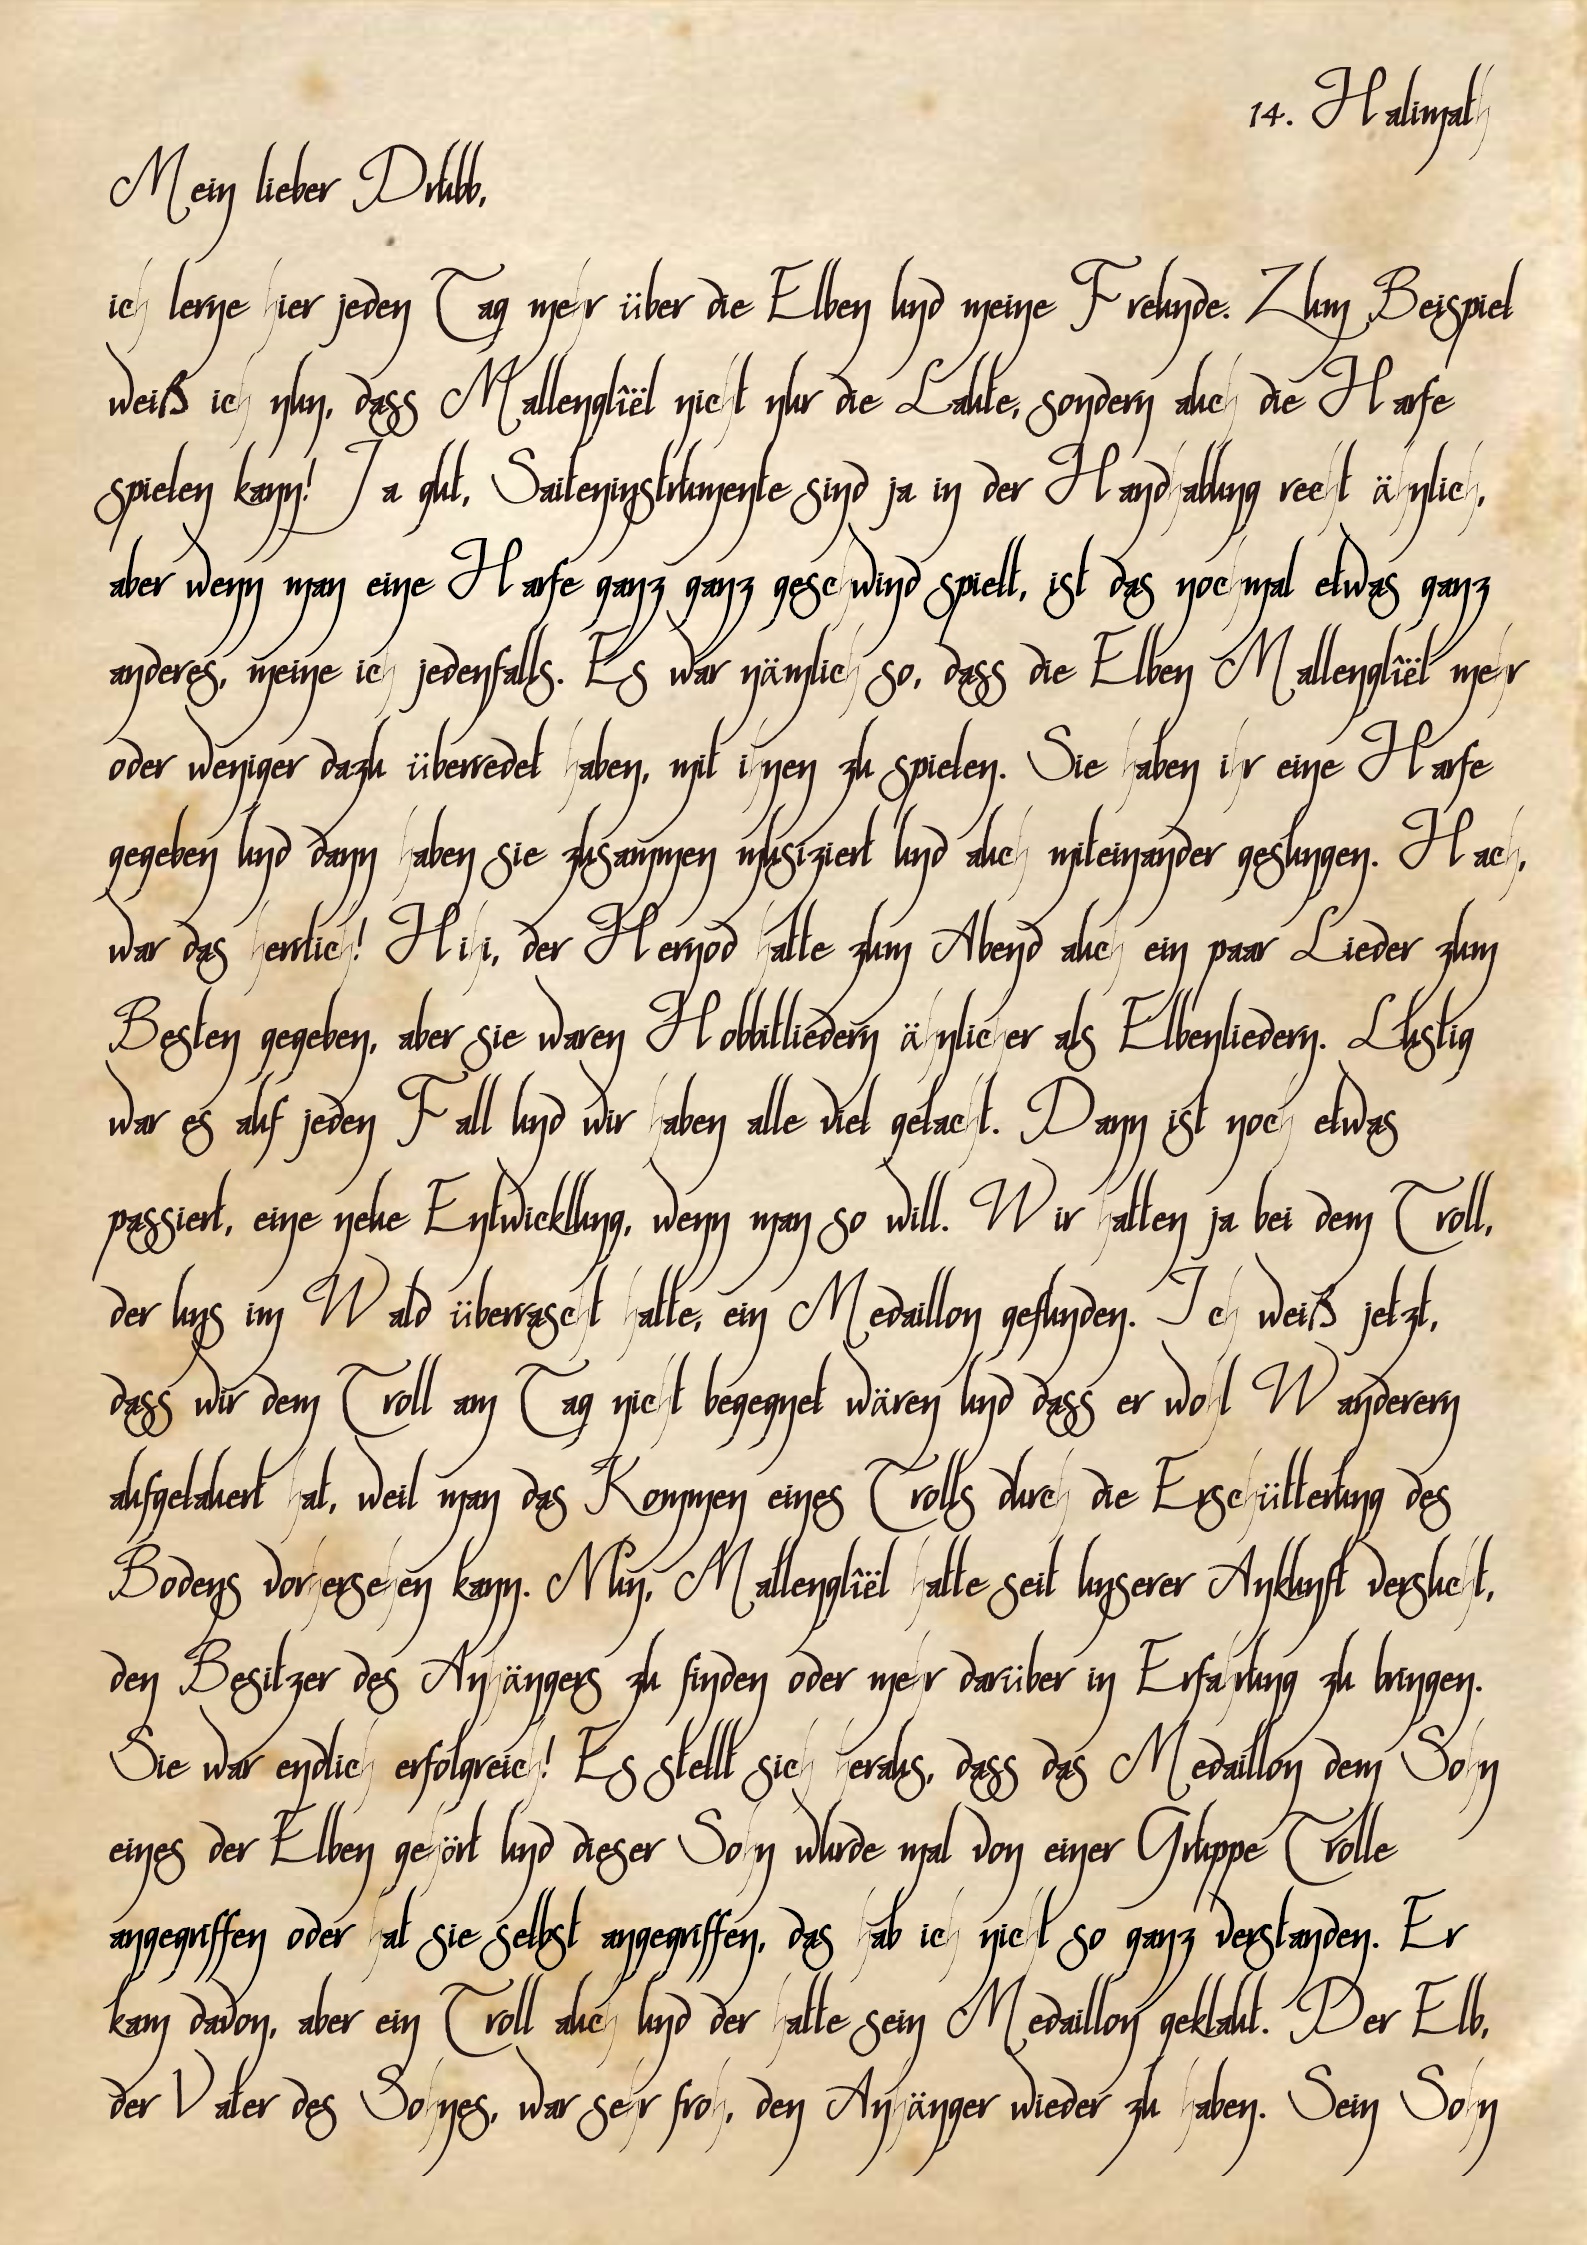 14. Halimath
Mein lieber Drubb,
ich lerne hier jeden Tag mehr über die Elben und meine Freunde. Zum Beispiel
weiß ich nun, dass Mallenglîël nicht nur die Laute, sondern auch die Harfe
spielen kann! Ja gut, Saiteninstrumente sind ja in der Handhabung recht ähnlich,
aber wenn man eine Harfe ganz ganz geschwind spielt, ist das nochmal etwas ganz
anderes, meine ich jedenfalls. Es war nämlich so, dass die Elben Mallenglîël mehr
oder weniger dazu überredet haben, mit ihnen zu spielen. Sie haben ihr eine Harfe
gegeben und dann haben sie zusammen musiziert und auch miteinander gesungen. Hach,
war das herrlich! Hihi, der Hernod hatte zum Abend auch ein paar Lieder zum
Besten gegeben, aber sie waren Hobbitliedern ähnlicher als Elbenliedern. Lustig
war es auf jeden Fall und wir haben alle viel gelacht. Dann ist noch etwas
passiert, eine neue Entwicklung, wenn man so will. Wir hatten ja bei dem Troll,
der uns im Wald überrascht hatte, ein Medaillon gefunden. Ich weiß jetzt,
dass wir dem Troll am Tag nicht begegnet wären und dass er wohl Wanderern
aufgelauert hat, weil man das Kommen eines Trolls durch die Erschütterung des
Bodens vorhersehen kann. Nun, Mallenglîël hatte seit unserer Ankunft versucht,
den Besitzer des Anhängers zu finden oder mehr darüber in Erfahrung zu bringen.
Sie war endlich erfolgreich! Es stellt sich heraus, dass das Medaillon dem Sohn
eines der Elben gehört und dieser Sohn wurde mal von einer Gruppe Trolle
angegriffen oder hat sie selbst angegriffen, das hab ich nicht so ganz verstanden. Er
kam davon, aber ein Troll auch und der hatte sein Medaillon geklaut. Der Elb,
der Vater des Sohnes, war sehr froh, den Anhänger wieder zu haben. Sein Sohn